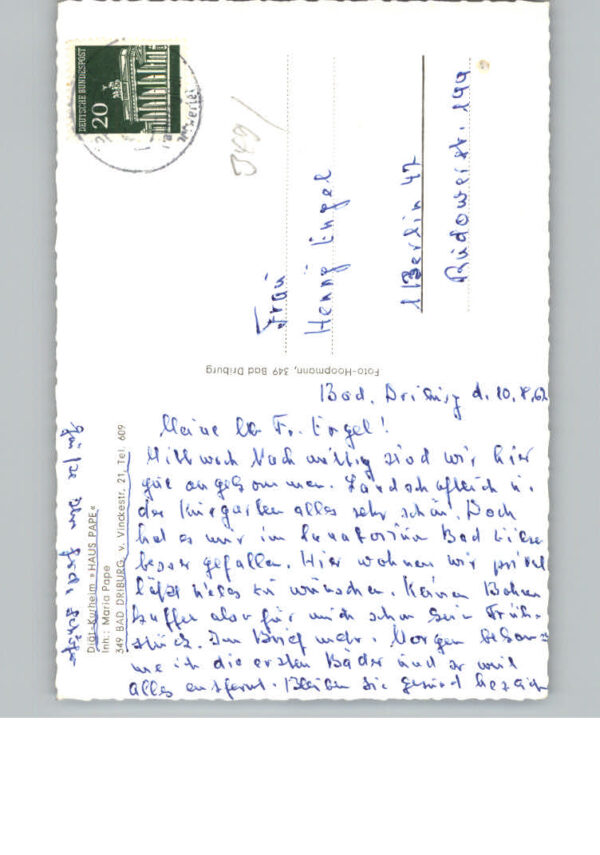 DEUTSCHE BUNDESPOST
20
349/
Frau
Henny Engel
1/Berlin 47
Rudowerstr. 199
Foto-Hoopmann, 349 Bad Driburg
Diät-Kurheim »HAUS PAPE«
Inh.: Maria Pape
349 BAD DRIBURG, v. Vinckestr. 21, Tel. 609
Bad. Driburg d. 10.8.
Meine lb Fr. Engel!
Mittwoch Nachmittag sind wir hier
gut angekommen. Landschaftlich u.
der Kurgarten alles sehr schön. Doch
hat es mir im Sanatorium Bad
besser gefallen. Hier wohnen wir privat
läßt vieles zu wünschen. Keinen Bohnen
kaffee aber für mich schon sein Früh-
stück. Im Brief mehr. Morgen bekom-
me ich die ersten Bäder und so weit
alles entfernt. Bleiben Sie gesund herzlich